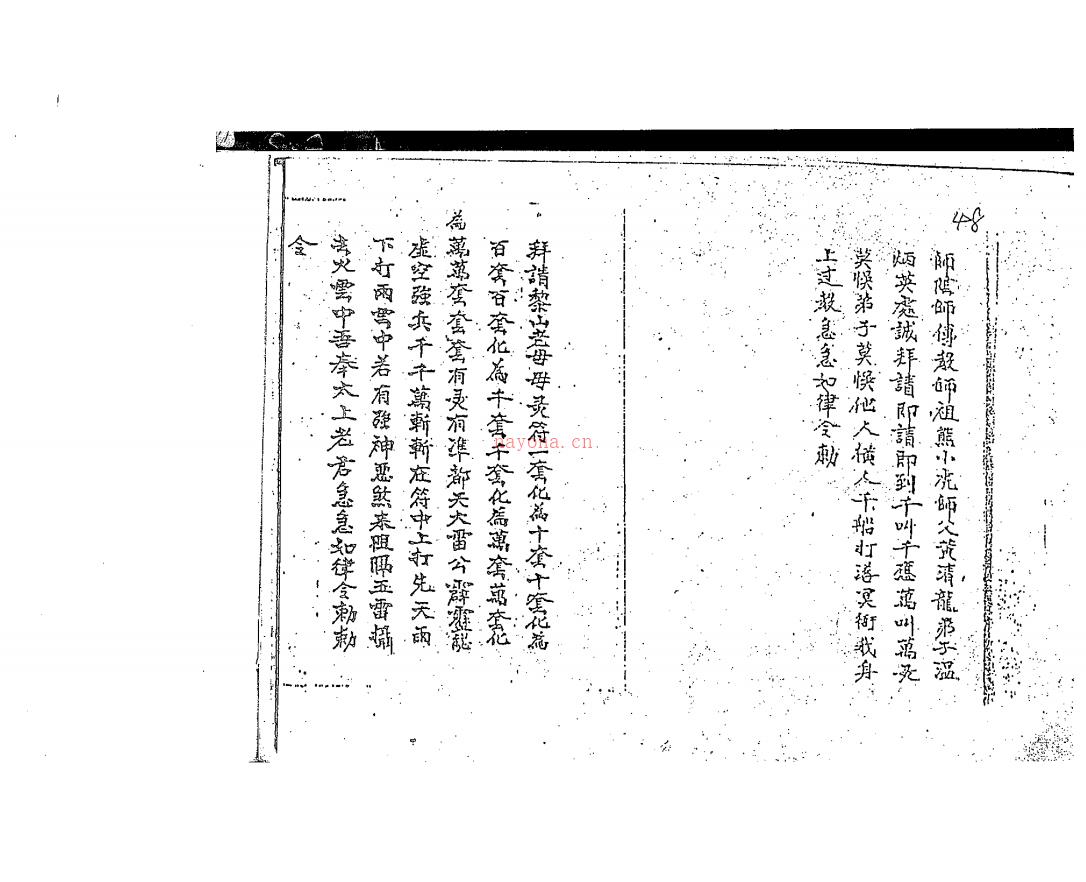 48
師陰師傅教師祖熊小洗師父黃清龍弟子溫
炳英處誠拜請即請即到千叫千應萬叫萬灵
莫悮弟子莫悮他人橫人千船打落冥衙我身
上过教急急如律令勅
拜請黎山老母母灵符一套化為十套十套化為
百套百套化為千套千套化為萬套萬套化
為萬萬套套套有灵有準都天大雷公霹靂
虛空強兵千千萬斬斬在符中上打先天雨
下打雨雲中若有强神惡煞來阻隔玉雷攝
去火雲中吾奉太上老君急急如律令勅勅
令
nayona.cn.